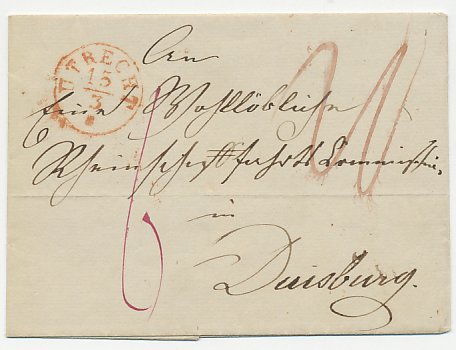 An
UTRECHT
15/3
Eine Wohllöbliche
Rheinschifffahrts Commission
in
Duisburg.
6